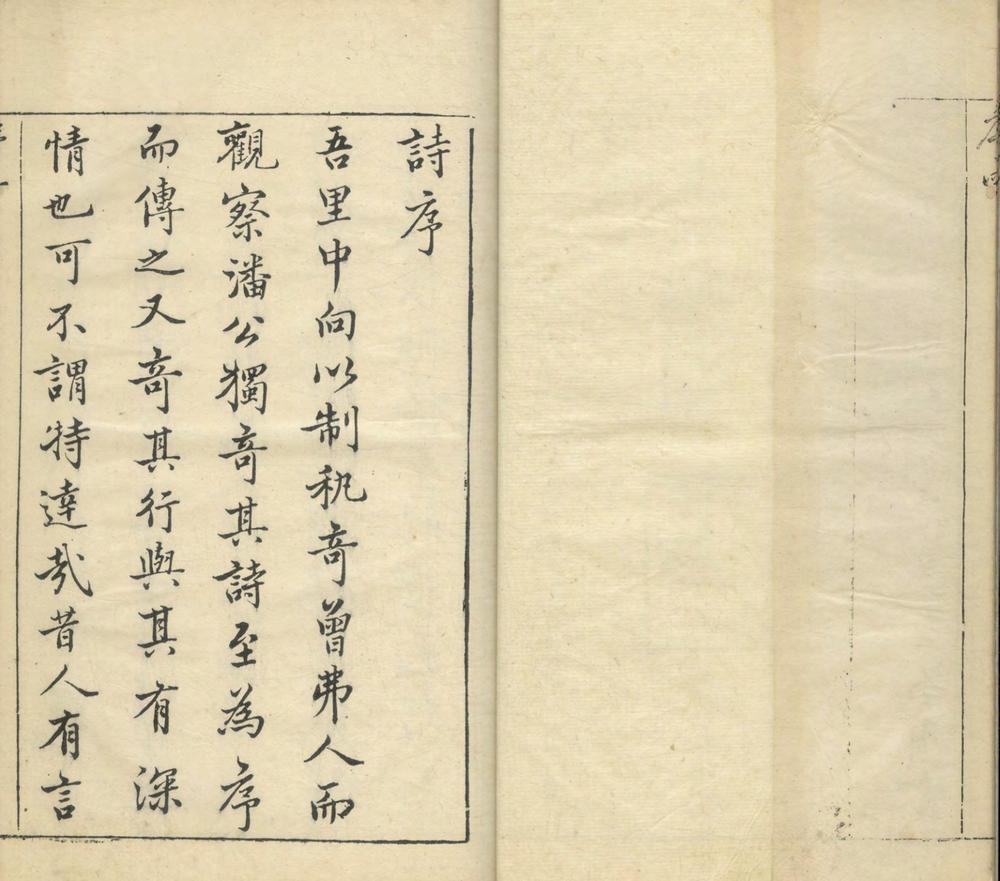 詩序
吾里中向以制秇竒曾弗人而
觀察潘公獨竒其詩至為序
而傳之又竒其行與其有深
情也可不謂特達哉昔人有言